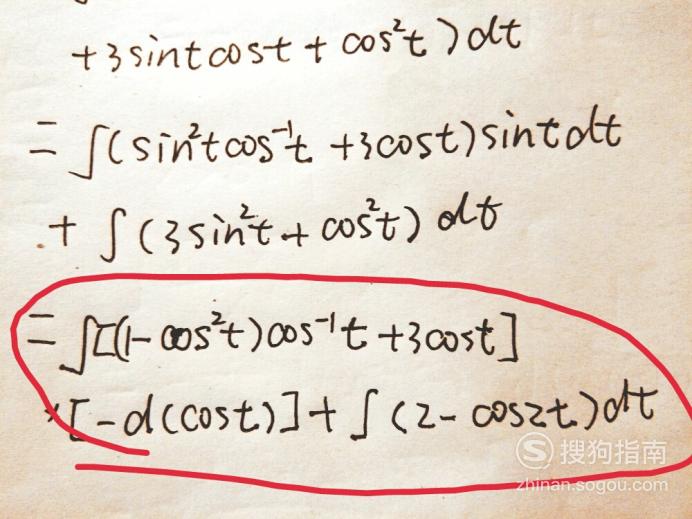 +3sintcost+cos²t)dt
=∫(sin²tcos⁻¹t+3cost)sintdt
+∫(3sin²t+cos²t)dt
=∫[(1-cos²t)cos⁻¹t+3cost]
*[-d(cost)]+∫(2-cos2t)dt
搜狗指南
zhinan.sogou.com